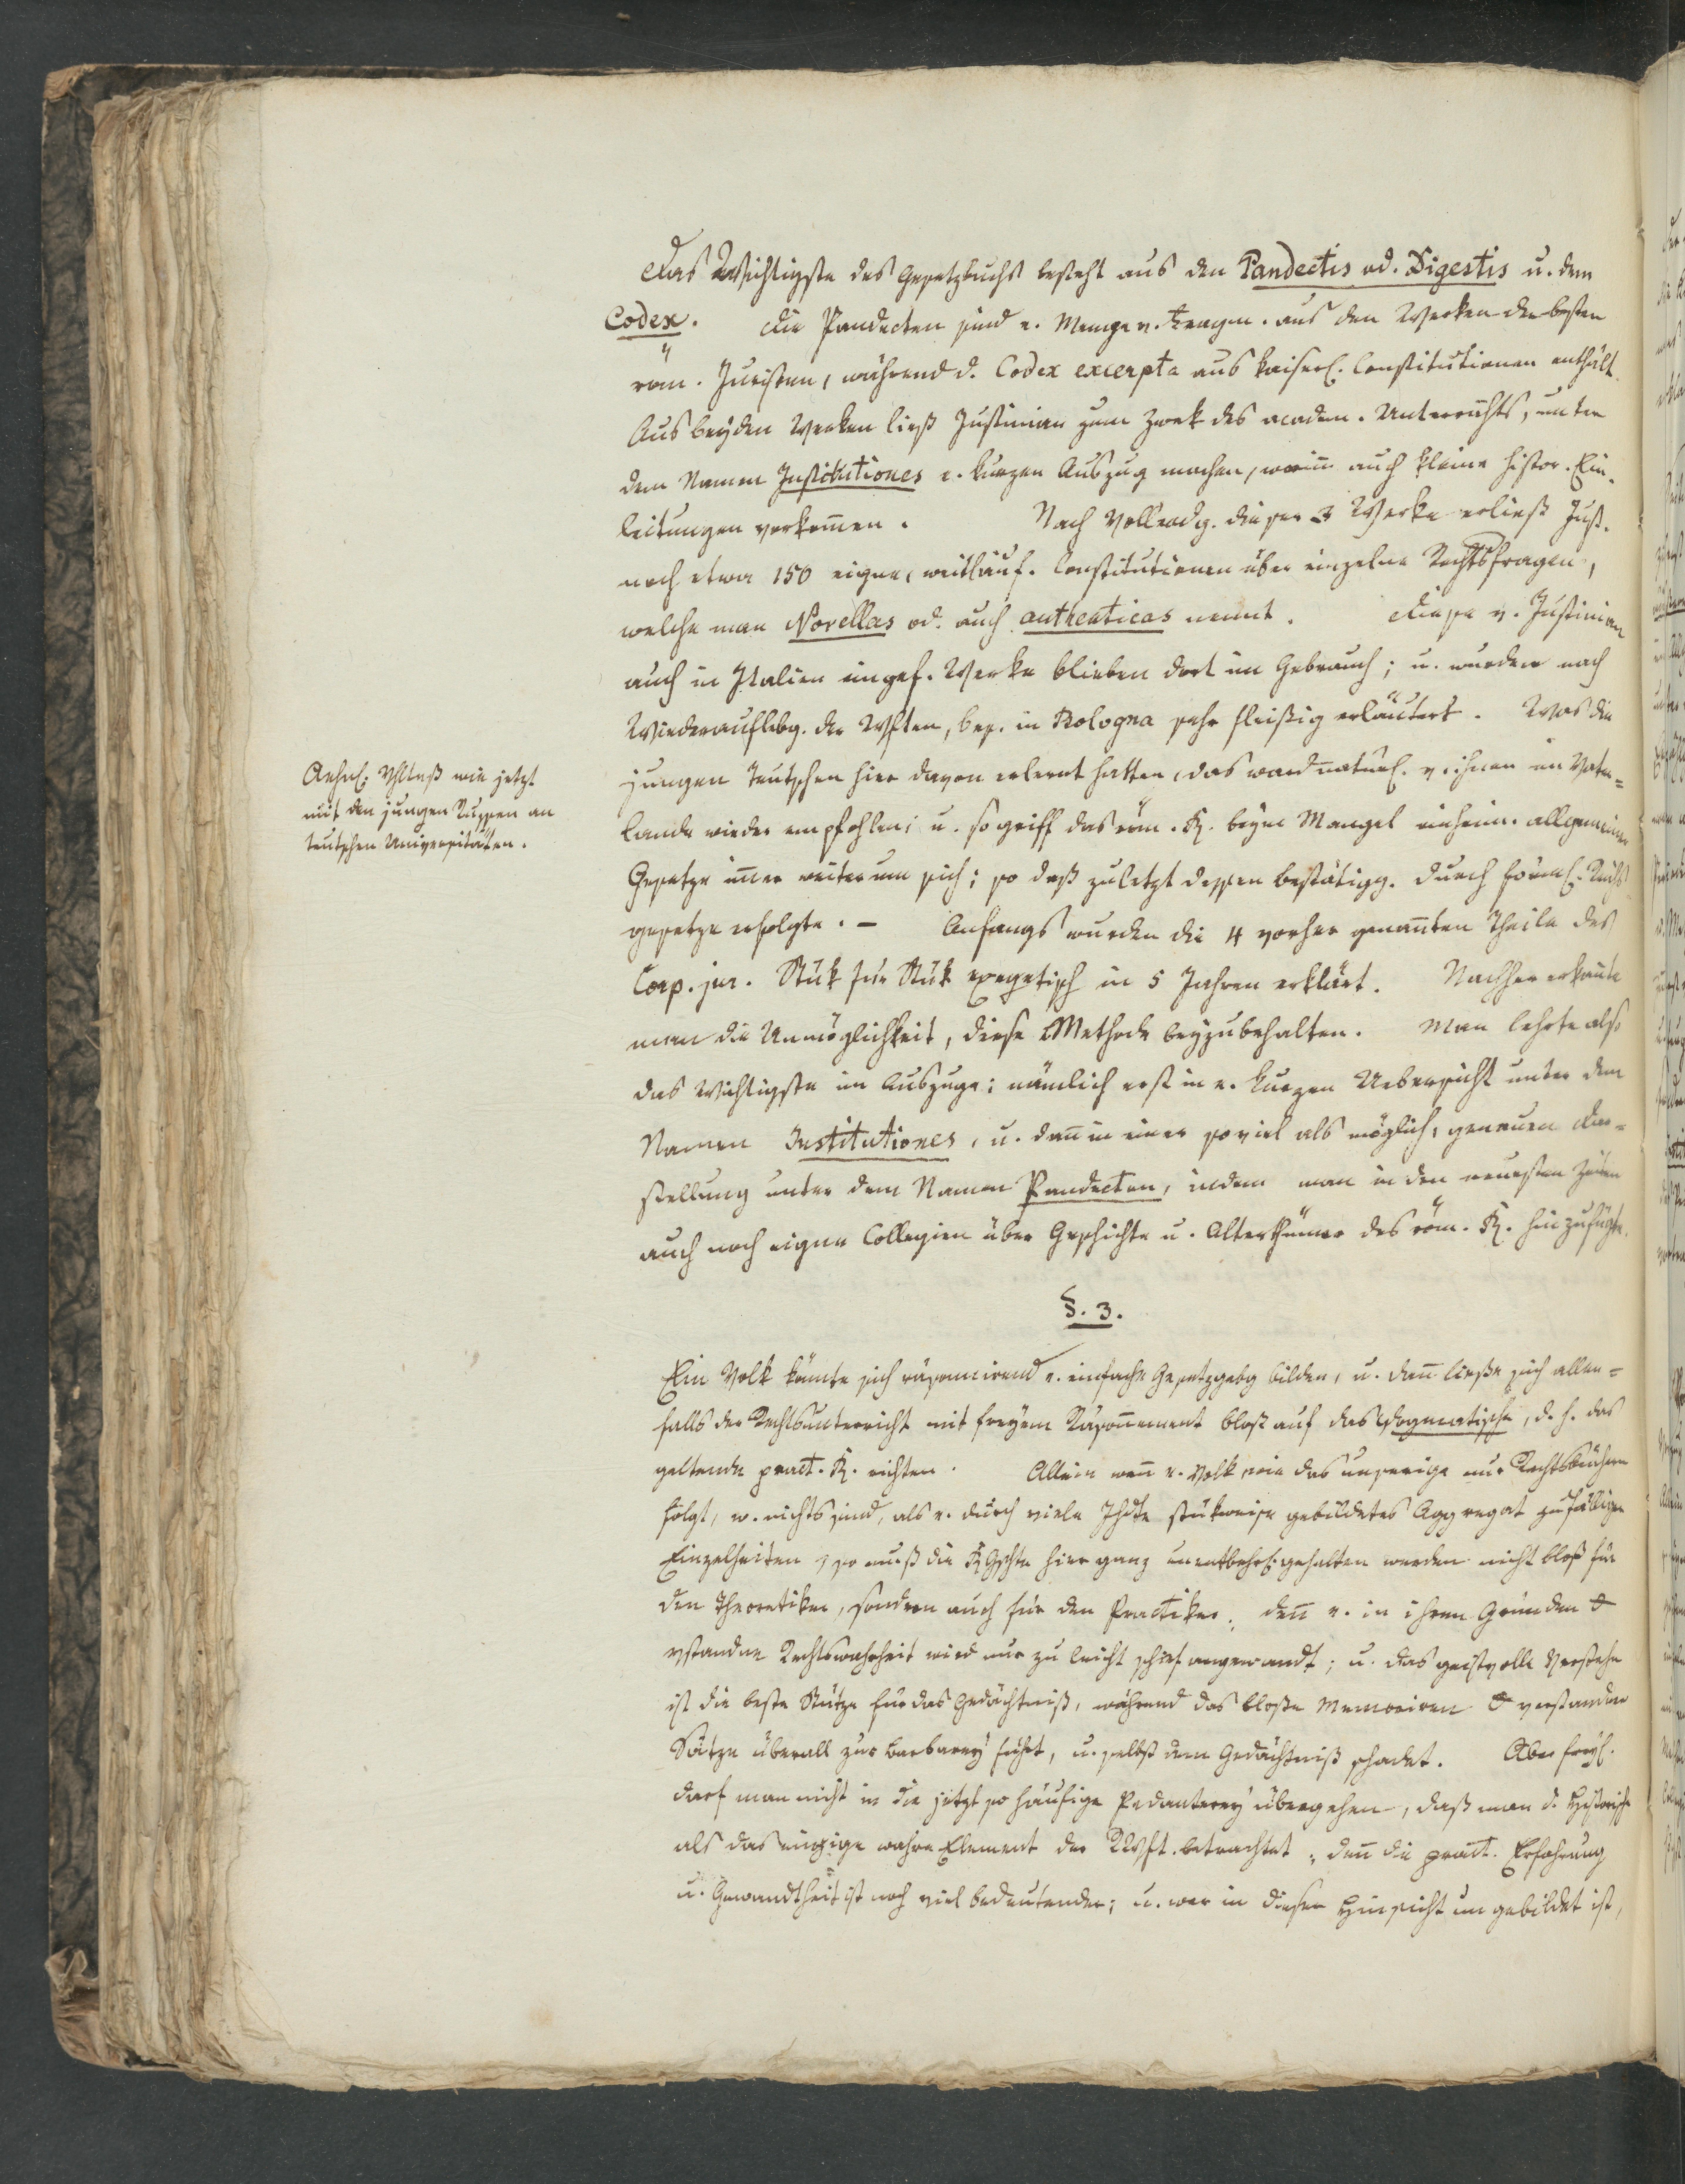 Das Wichtigste des Gesetzbuchs besteht aus den Pandectis od. Digestis u. dem
Codex. Die Pandecten sind e. Menge v. Fragm. aus den Werken der besten
röm. Juristen, während d. Codex excerpta aus kaiserl. Constitutionen enthält.
Aus beyden Werken ließ Justinian zum Zwek des academ. Unterrichts, unter
dem Namen Institutiones e. kurzen Auszug machen, worin auch kleine histor. Ein-
leitungen vorkom̄en. Nach Vollendg. dieser 3 Werke erließ Just.
noch etwa 150 eigne, weitläuf. Constitutionen über einzelne Rechtsfragen,
welche man Novellas od. auch authenticas nennt. Diese v. Justinian
auch in Italien eingef. Werke blieben dort im Gebrauch; u. wurden nach
Wiederauflebg. der Wsften, bes. in Bologna sehr fleißig erläutert. Was die
jungen Teutschen hier davon erlernt hatten, das ward natürl. v. ihnen im Vater=
lande wieder empfohlen; u. so griff das röm. R. beym Mangel einheim. allgemeiner
Gesetze im̄er weiter um sich; so daß zuletzt dessen Bestätigg. durch förml. Reichs
gesetze erfolgte. – Anfangs wurden die 4 vorher genan̄ten Theile des
Corp. jur. Stük für Stük exegetisch in 5 Jahren erklärt. Nachher erkan̄te
man die Unmöglichkeit, diese Methode beyzubehalten. Man lehrte also
das Wichtigste im Auszuge; nämlich erst in e. kurzen Uebersicht unter dem
Namen Institutiones, u. dan̄ in einer so viel als möglich, genauen Dar=
stellung unter dem Namen Pandecten, indem man in den neuesten Zeiten
auch noch eigne Collegien über Geschichte u. Alterthümer des röm. R. hinzufügte.
Aehnl. Vhltniß wie jetzt
mit den jungen Russen an
teutschen Universitäten.
§. 3.
Ein Volk könnte sich räsonnirend e. einfache Gesetzgebg bilden, u. dan̄ ließe sich allen=
falls der Rechtsunterricht mit freyem Räson̄ement bloß auf das Dogmatische, d. h. das
geltende pract. R. richten. Allein wen̄ e. Volk wie das unserige nur Rechtsbüchern
folgt, w. nichts sind, als e. durch viele Jhdte stükweise gebildetes Aggregat zufälliger
Einzelheiten, so muß die RGschte hier ganz unentbehrl. gehalten werden nicht bloß für
den Theoretiker, sondern auch für den Practiker; den̄ e. in ihren Gründen
vstandne Rechtswahrheit wird nur zu leicht schief angewandt; u. das geistvolle Verstehn
ist die beste Stütze für das Gedächtniß, während das bloße Memoriren verstandner
Sätze überall zur Barbarey führt, u. selbst dem Gedächtniß schadet. Aber freyl.
darf man nicht in die jetzt so häufige Pedanterey übergehen, daß man d. Historische
als das einzige wahre Element der RWsft. betrachtet; den̄ die pract. Erfahrung
u. Gewandtheit ist noch viel bedeutender; u. wer in dieser Hinsicht ungebildet ist,